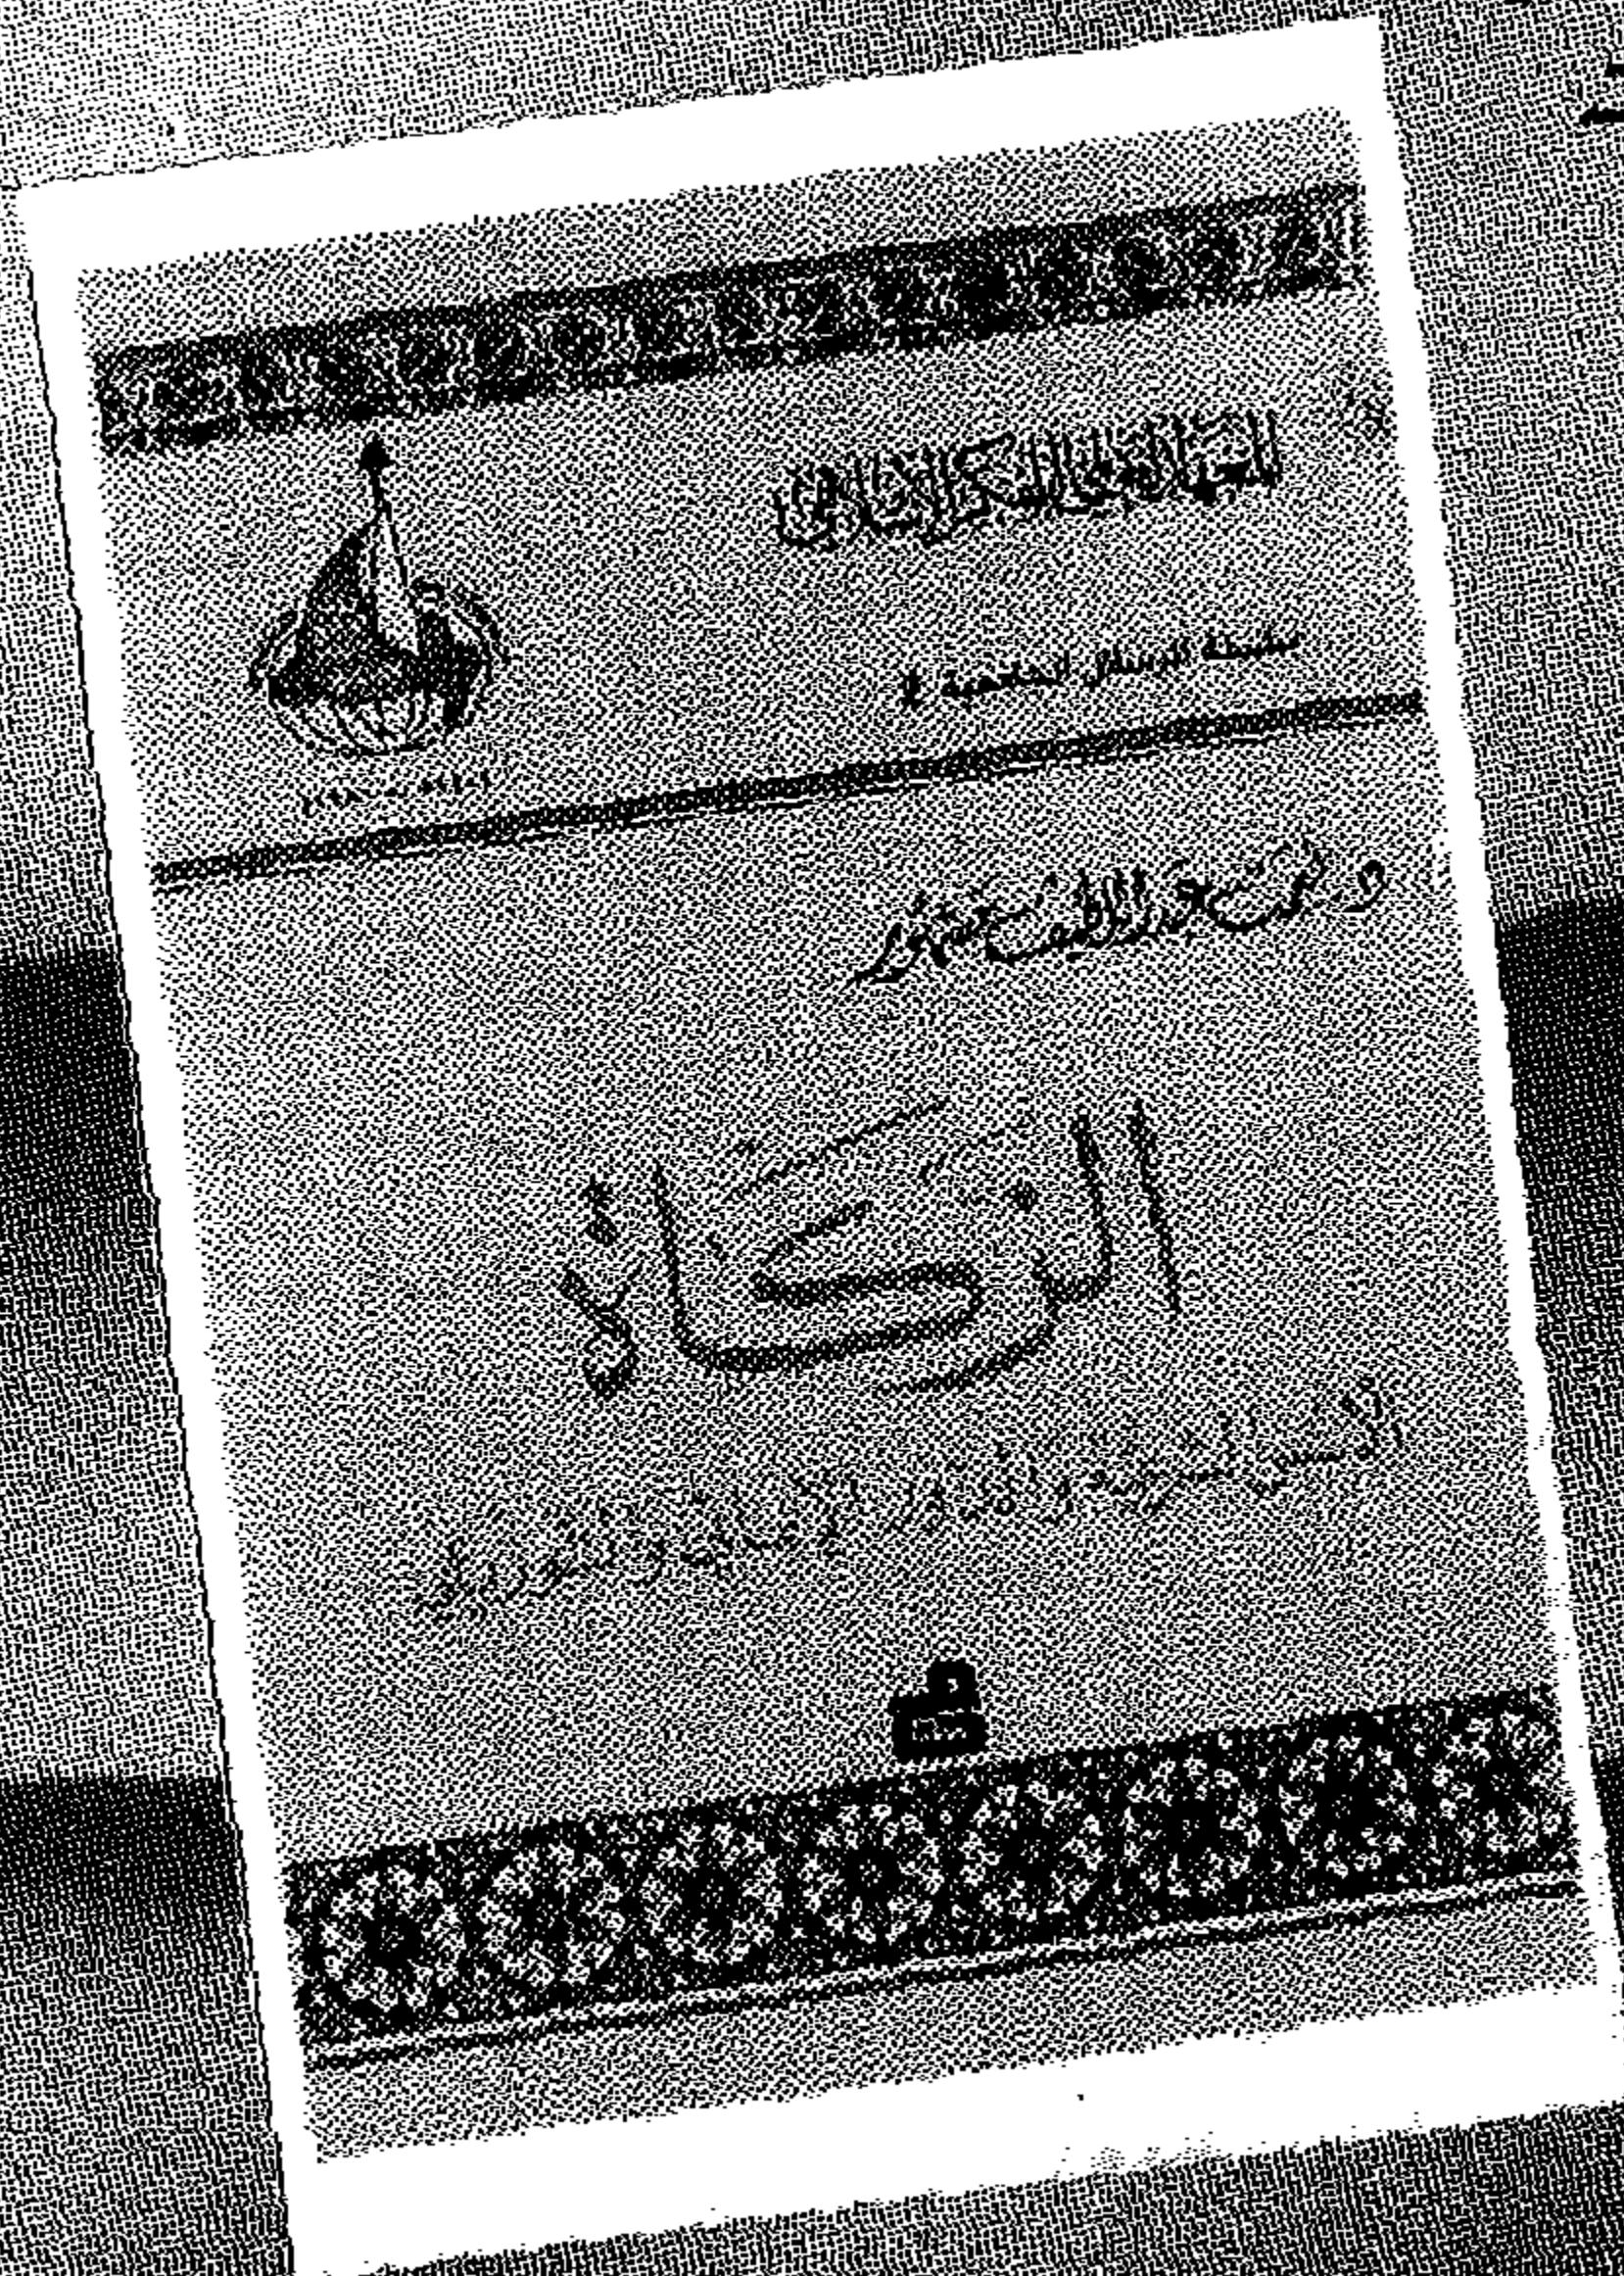 المعهد العالمي للفكر الإسلامي
سلسلة الرسائل الجامعية
١٤٠١هـ - ١٩٨١م
د. نعمت عبد اللطيف مشهور
الزكاة
الأسس الشرعية والدور الإنمائي والتوزيعي